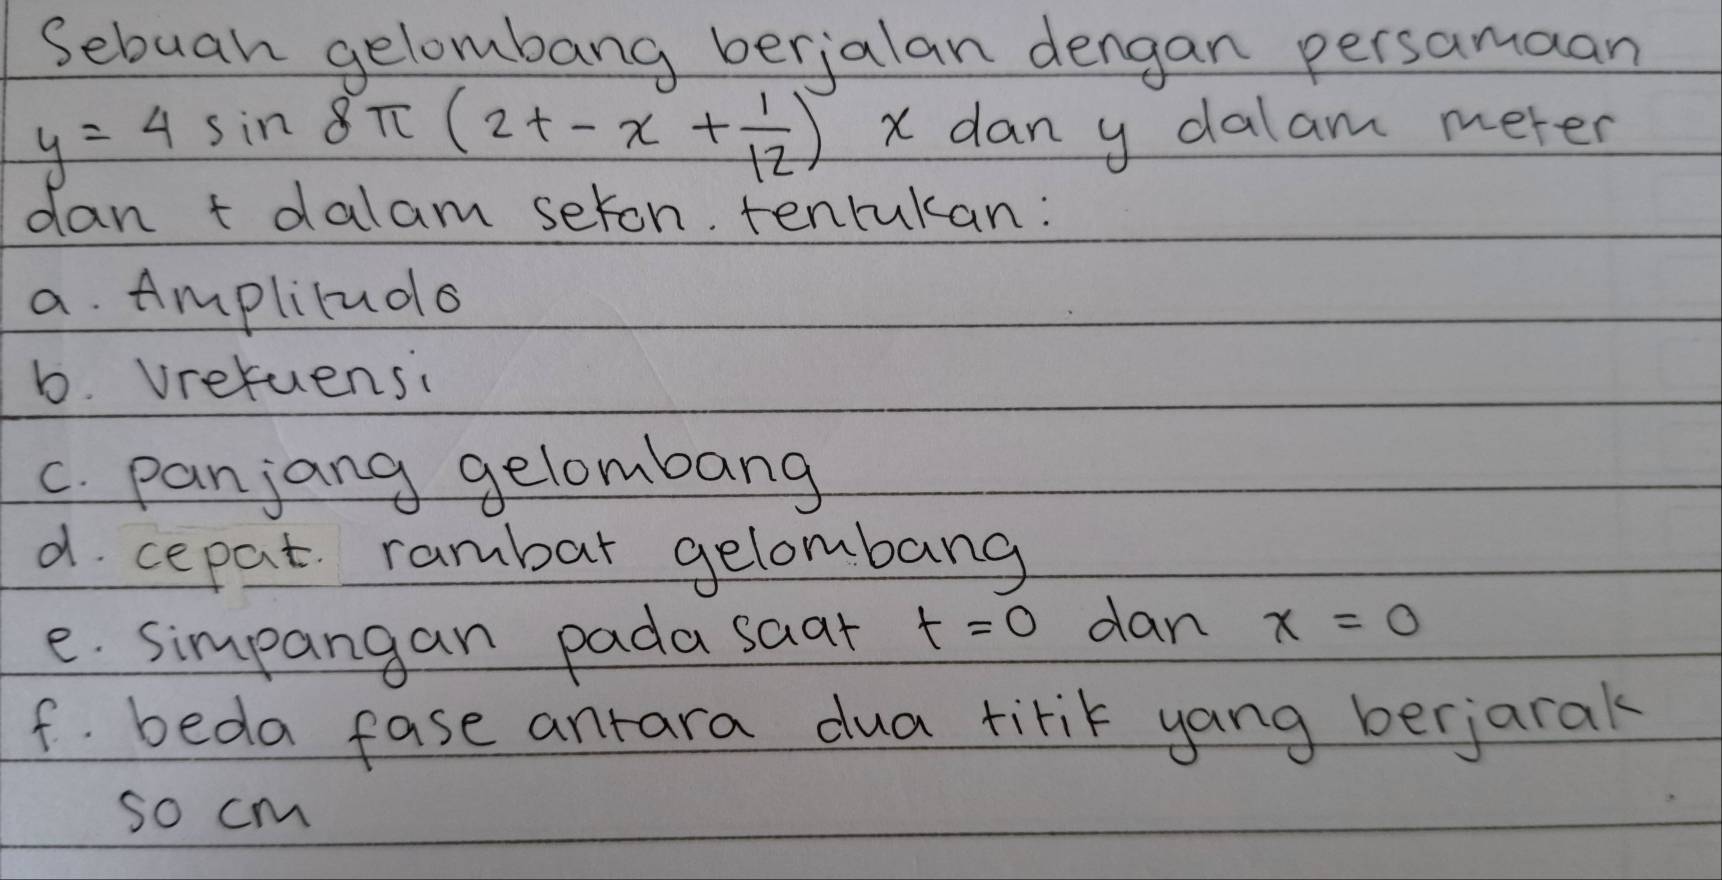 Sebuah gelombang berjalan dengan persamaan
y = 4 sin 8π (2t - x + 1/12) x dan y dalam meter
dan t dalam sekon. tentukan:
a. Amplitudo
b. Vrekuensi
c. panjang gelombang
d. cepat. rambat gelombang
e. simpangan pada saat t = 0 dan x = 0
f. beda fase antara dua titik yang berjarak
50 cm